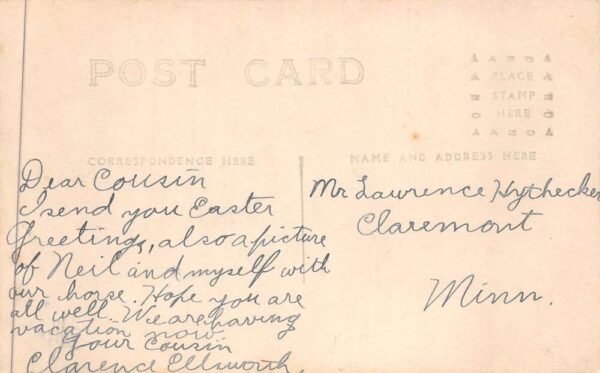 POST CARD
PLACE
STAMP
HERE
CORRESPONDENCE HERE
NAME AND ADDRESS HERE
Dear Cousin
I send you Easter
Greetings, also a picture
of Neil and myself with
our horse. Hope you are
all well. We are having
vacation now.
Your Cousin
Clarence Ellsworth.
Mr Lawrence Hythecker
Claremont
Minn.